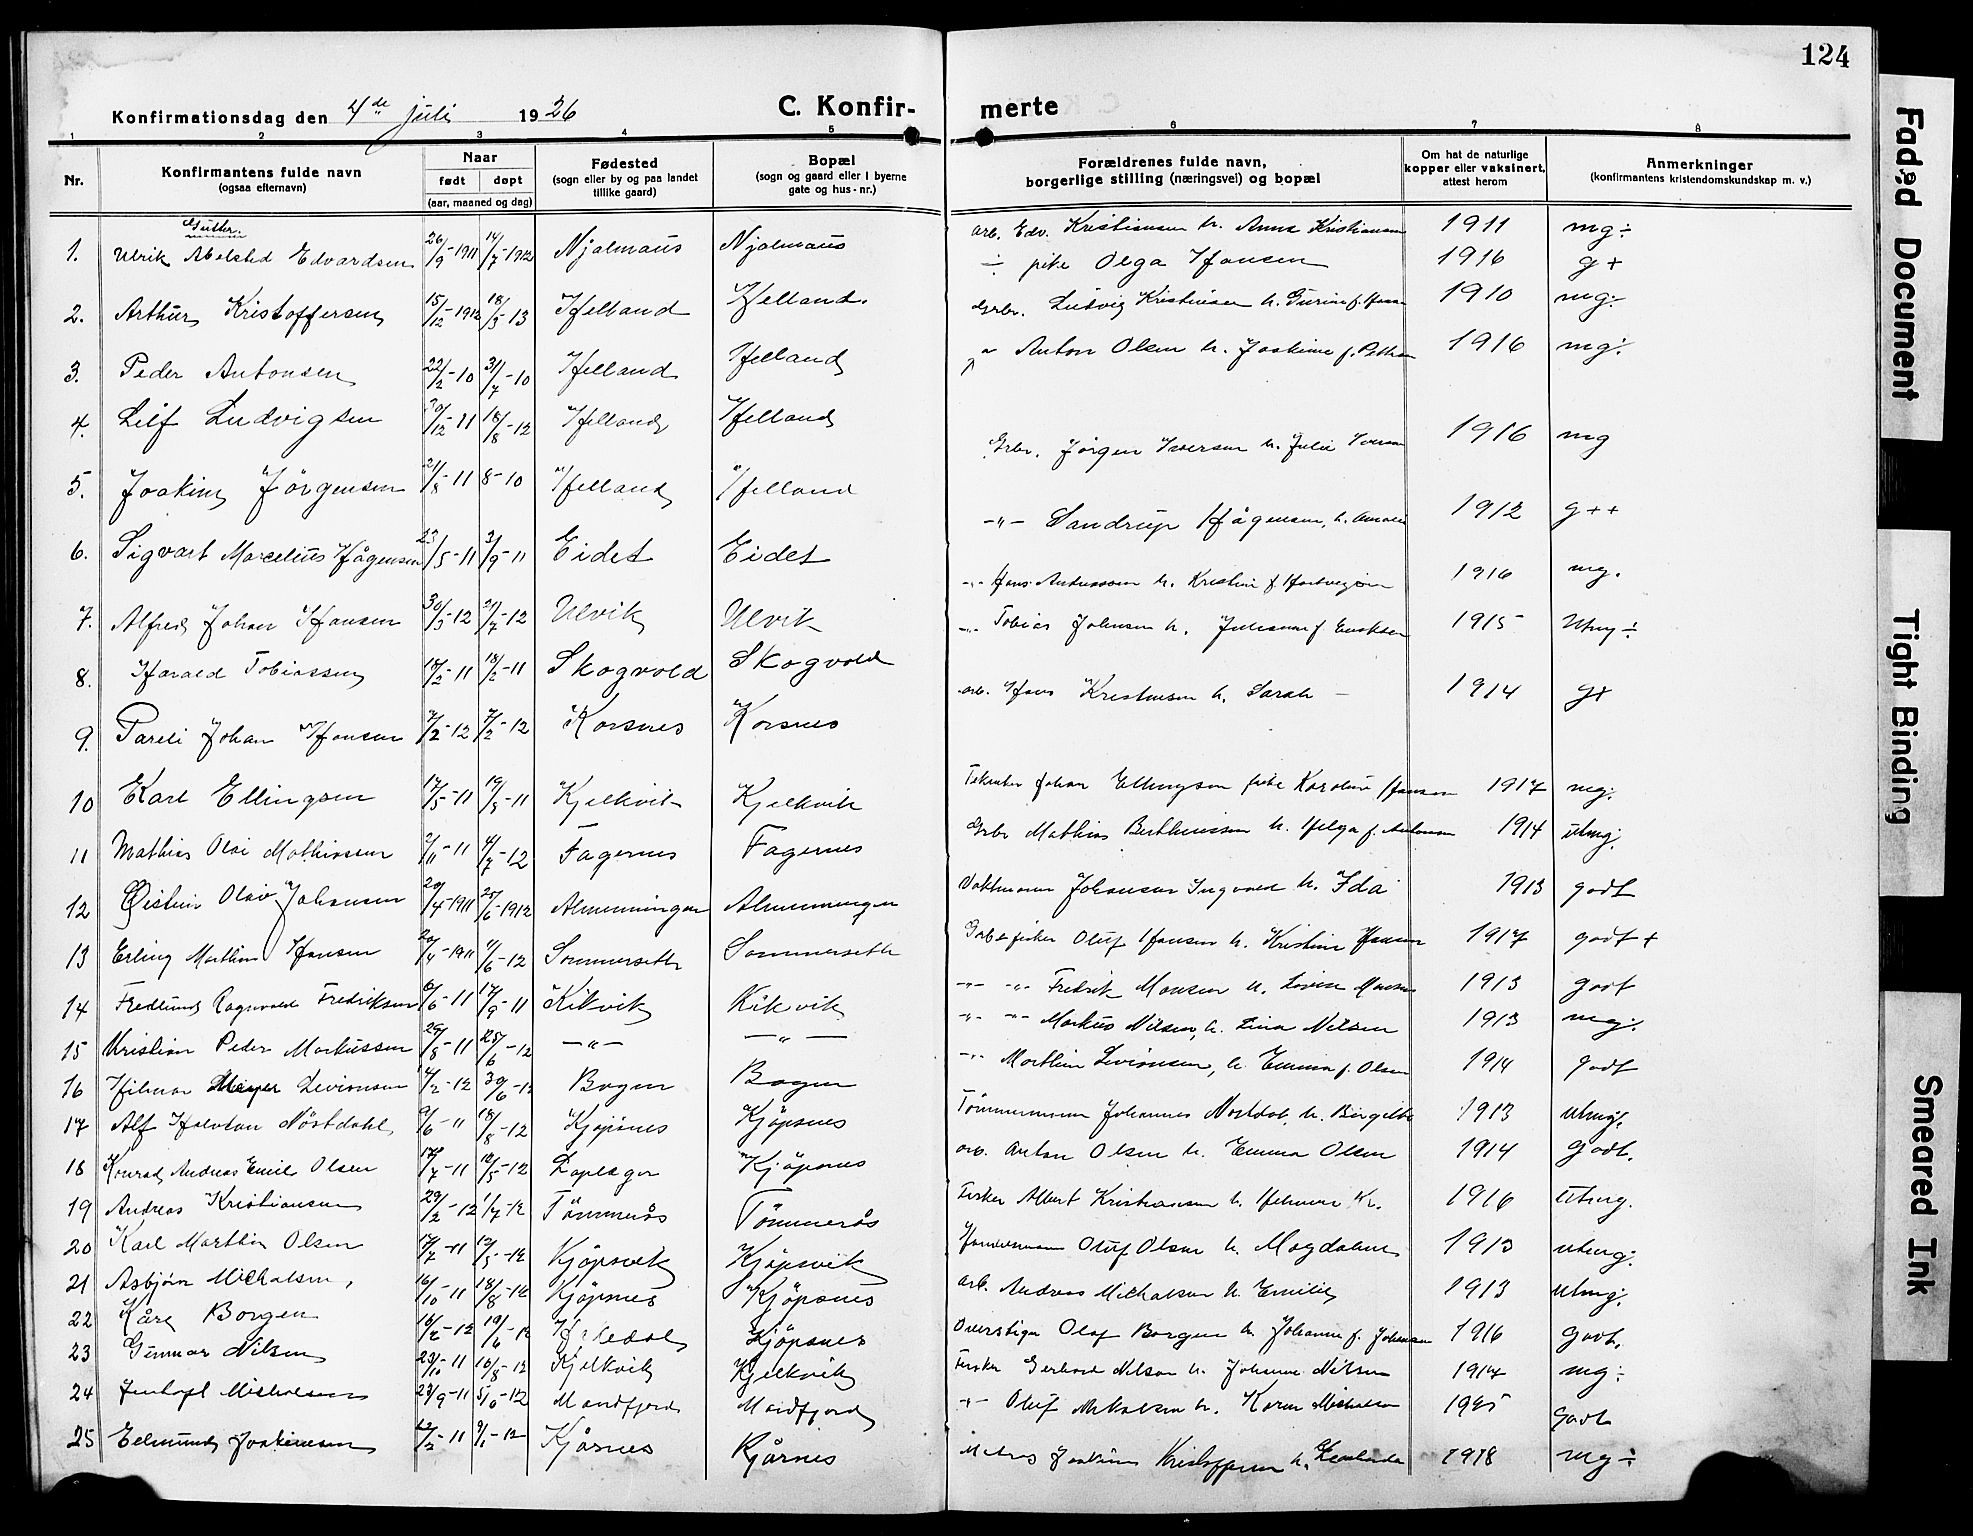 124
Konfirmationsdag den 4de juli 1926
C. Konfir-
merte
1 2 3 4 5 6 7 8
Nr.
Konfirmantens fulde navn
(ogsaa efternavn)
Naar
født døpt
(aar, maaned og dag)
Fødested
(sogn eller by og paa landet
tillike gaard)
Bopæl
(sogn og gaard eller i byerne
gate og hus-nr.)
Forældrenes fulde navn,
borgerlige stilling (næringsvei) og bopæl
Om hat de naturlige
kopper eller vaksinert,
attest herom
Anmerkninger
(konfirmantens kristendomskundskap m. v.)
Gutter.
1. Ulrik Edvardsen 26/9-1911 14/7-1912 Njalmaus Njalmaus
2. Arthur Kristoffersen 15/12-1912 18/3-13 Helland Helland.
3. Peder Antonsen 22/2-10 31/7-10 Helland Helland
4. Leif Ludvigsen 30/12-11 18/8-12 Helland Helland
5. Joakim Jörgensen 21/8-11 8-10 Helland Helland
6. Sigvart Marcelius Hågensen 23/5-11 3/9-11 Eidet Eidet
7. Alfred Johan Hansen 30/3-12 21/7-12 Ulvik Ulvik
8. Harald Tobiassen 18/2-11 18/2-11 Skogvold Skogvold
9. Pareli Johan Hansen 7/2-12 7/2-12 Korsnes Korsnes
10 Karl Ellingsen 17/5-11 19/3-11 Kjelkvik Kjelkvik
11 Mathias Olai Mathissen 2/11-11 4/7-12 Fagernes Fagernes
12 Øistein Olav Johansen 20/4-1911 25/6-1912 Almenningen Almenningen
13 Erling Marthin Hansen 20/4-1911 9/6-12 Sommerseth Sommerseth
14 Fredlund Ragnvald Fredriksen 6/6-11 17/9-11 Kikvik Kikvik
15 Kristian Peder Markussen 29/8-11 25/6-12 -"- -"-
16 Hilmar Meyer Levionsen 4/2-12 30/6-12 Bogen Bogen
17 Alf Halvdan Nöstdahl 9/6-11 18/8-12 Kjöpsnes Kjöpsnes
18 Konrad Andreas Emil Olsen 17/7-11 12/5-12 Kjöpsnes
19 Andreas Kristiansen 29/2-12 1/7-12 Tömmerås Tömmerås
20 Karl Marthin Olsen 17/7-11 12/5-12 Kjöpsvik Kjöpsvik
21 Asbjörn Michalsen, 16/10-11 18/8-12 Kjöpsnes Kjöpsnes
22 Kåre Borgen 16/2-12 19/6-12 Kjöpsnes
23 Gunnar Nilsen 23/10-11 16/8-12 Kjelkvik Kjelkvik
24 Michalsen 23/9-11 -12 Mandfjord Mandfjord
25 Edmund Joakimsen 12/2-11 9/1-12 Kjårnes Kjårnes
arb. Edv. Kristiansen h. Anna Kristiansen 1911 mg÷
÷ pike Olga Hansen 1916 g+
Grbr. Ludvig Kristiansen h. Gurine f. 1910 mg÷
Anton Olsen h. Joakime f. 1916 mg÷
Grbr. Jörgen Iversen h. Julie Iversen 1916 mg
-"- Sandrup Hågensen, h. Amalie 1912 g++
-"- Hans Andreassen h. Kristine f. Hartvigsen 1916 mg.
-"- Tobias Johnsen h. Julianna f. 1915 Utmg÷
arb. Hans Kristensen h. Sarah - 1914 g+
Johan Ellingsen pike Karoline Hansen 1917 mg÷
Grbr Mathias Berthinissen h. Helga f. 1914 utmg.
Vaktmann Johansen Ingvald h. Ida 1913 godt
Oluf Hansen h. Kristine Hansen 1917 godt +
-"- -"- Fredrik Monsen h. Lovise Monsen 1913 godt
-"- -"- Markus Nilsen, h. Lina Nilsen 1913 mg÷
-"- Marthin Levionsen, h. Emma f. Olsen 1914 godt
Tömmermann Johannes Nöstdal, h. 1913 utmg.
arb. Anton Olsen h. Emma Olsen 1914 Godt.
Fisker Albert Kristiansen h. Kr. 1916 Utmg.
Oluf Olsen h. Magdalena 1913 utmg.
arb. Andreas Michalsen h. Emilie 1913 utmg.
Olaf Borgen h. Johanne f. Johansen 1916 Godt.
Fisker Gerhard Nilsen h. Johanne Nilsen 1914 mg÷
-"- Oluf Mikalsen h. Karen Michalsen Godt
Joakim Kristoffersen h. 1918 mg÷
Faded Document
Tight Binding
Smeared Ink